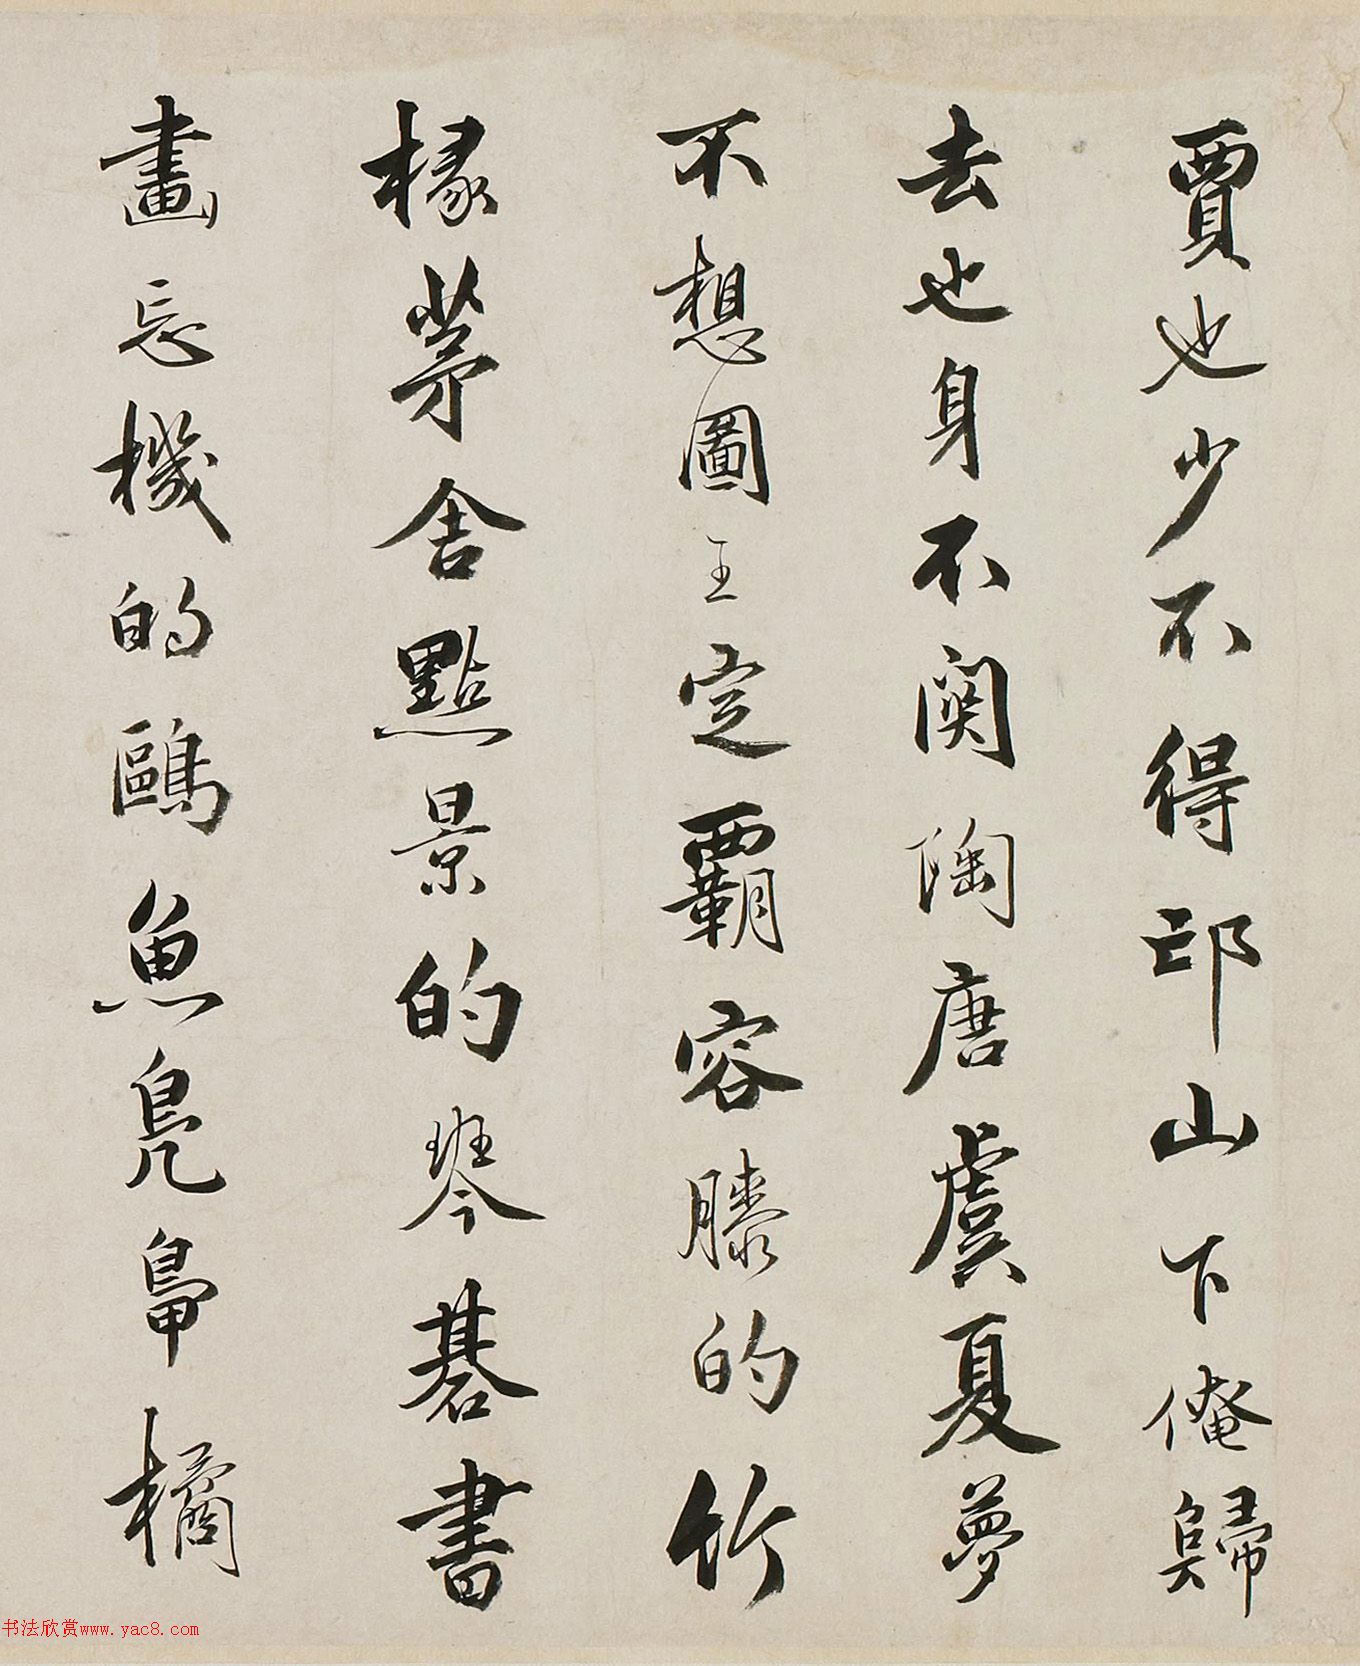 賈也少不得邙山下俺歸
去也身不関陶唐虞夏夢
不想圖王定霸容膝的竹
椽茅舍點景的琴碁書
畫忘機的鷗魚鳧鴨橘
书法欣赏www.yac8.com